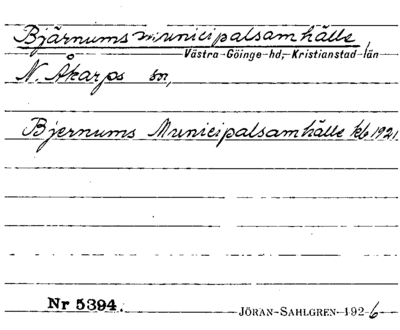 Bjärnums municipalsamhälle,
Västra Göinge hd, Kristianstad län
N. Åkarps sn,
Bjernums Municipalsamhälle kb 1921
Nr 5394.
JÖRAN SAHLGREN 1926